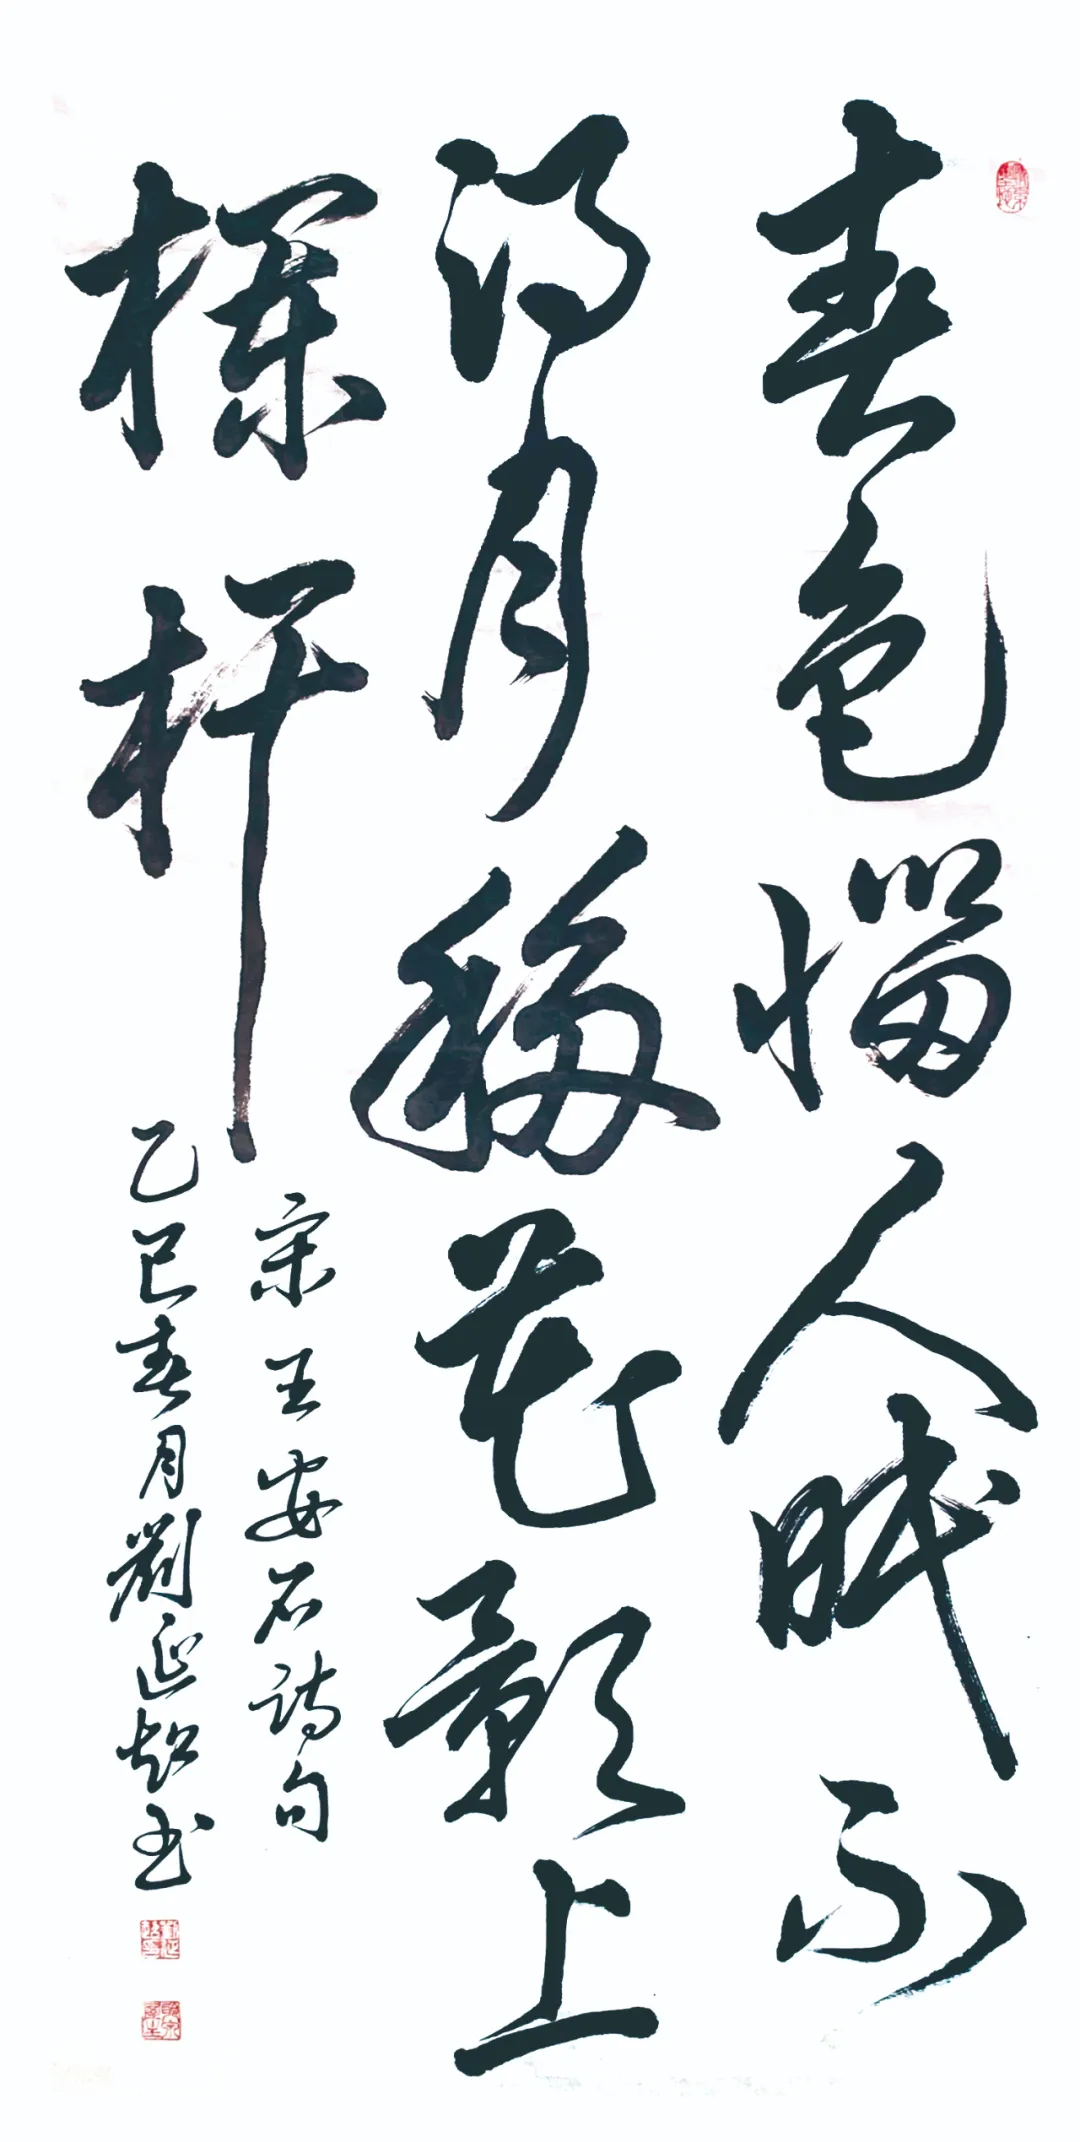 春色惱人眠不
得月移花影上
欄杆
宋王安石詩句
乙巳春月劉延超书